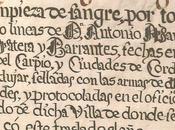 mpieza de sangre, por to
o lineas de D. Antonio
Barrantes, fechas en
del Carpio, y Ciudades de Cord
dujar, selladas con las armas de d
y protocoladas en el oficio
de dicha Villa de donde se
este traslado